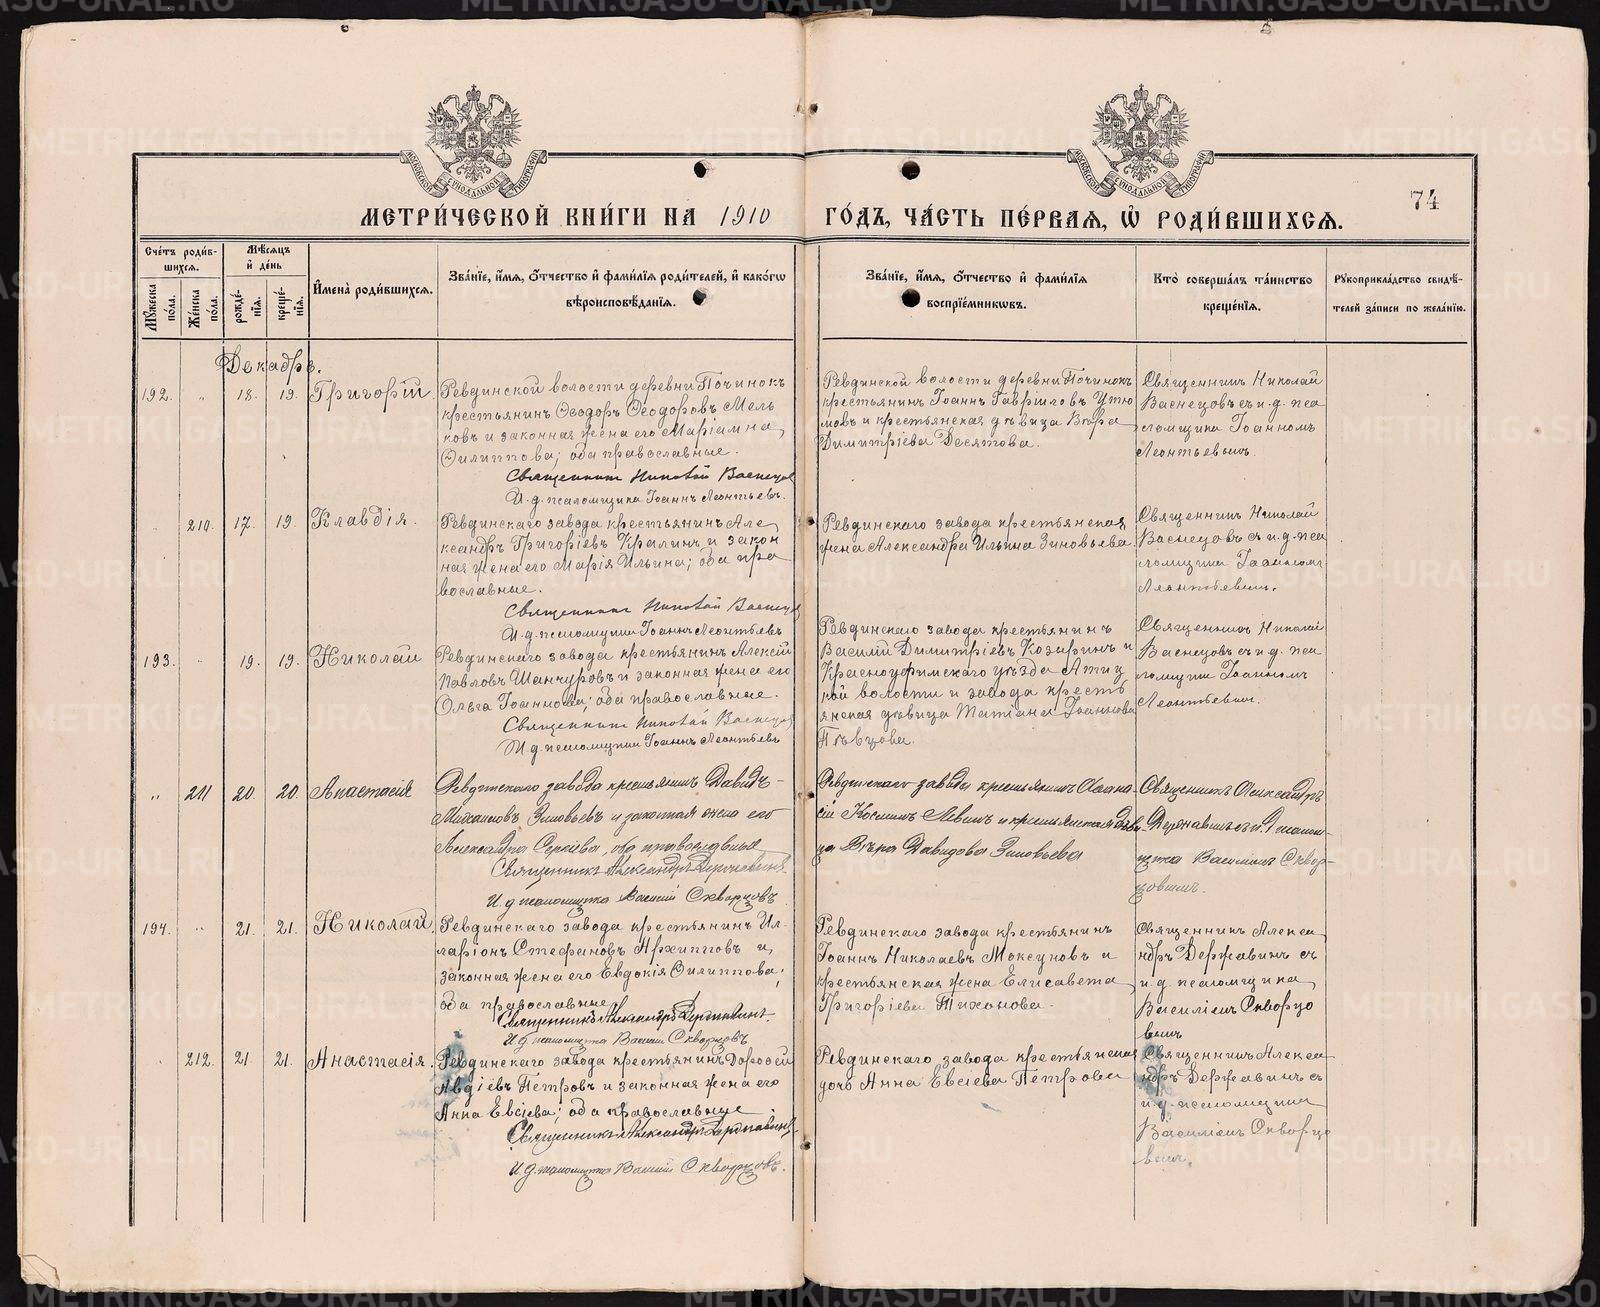 МЕТРИ́ЧЕСКОЙ КНИ́ГИ НА 1910 ГО́ДЪ, ЧА́СТЬ ПЕ́РВАЯ, Ѿ РОДИ́ВШИХСЯ.
74
Сче́тъ роди́в-
шихся.
Мѣ́сяцъ
и҆ де́нь
Мꙋ́жеска
по́ла.
Же́нска
по́ла.
рожде́-
нїя.
креще́-
нїя.
И҆мена̀ роди́вшихся.
Зва́нїе, и҆́мя, ѻ҆́тчество и҆ фами́лїя роди́телей, и҆ како́гѡ
вѣроисповѣ́данїя.
Зва́нїе, и҆́мя, ѻ҆́тчество и҆ фами́лїя
воспрїе́мникѡвъ.
Кто̀ соверша́лъ та́инство
креще́нїя.
Рꙋкоприкла́дство свидѣ́-
телей за́писи по жела́нїю.
Декабрь.
192. " 18. 19. Григорій
Ревдинской волости деревни Починокъ
крестьянинъ Ѳеодоръ Ѳеодоровъ Мель
ковъ и законная жена его Маріамна
Филиппова; оба православные.
Священникъ Николай Васнецов
И.д. псаломщика Іоаннъ Леонтьевъ.
Ревдинской волости деревни Починокъ
крестьянинъ Іоаннъ Гавріиловъ Утю
мовъ и крестьянская дѣвица Вѣра
Димитріева Десятова.
Священникъ Николай
Васнецовъ съ и.д. пса
ломщика Іоанномъ
Леонтьевымъ.
" 210. 17. 19. Клавдія.
Ревдинскаго завода крестьянинъ Але
ксандръ Григоріевъ Кралинъ и закон
ная жена его Марія Ильина; оба пра
вославные.
Священникъ Николай Васнецов
И.д. псаломщика Іоаннъ Леонтьевъ
Ревдинскаго завода крестьянская
жена Александра Ильина Зиновьева
Священникъ Николай
Васнецовъ съ и.д. пса
ломщика Іоанномъ
Леонтьевымъ.
193. " 19. 19. Николай
Ревдинскаго завода крестьянинъ Алексій
Павловъ Шанчуровъ и законная жена его
Ольга Іоаннова; оба православные.
Священникъ Николай Васнецов
И.д. псаломщика Іоаннъ Леонтьевъ
Ревдинскаго завода крестьянинъ
Василій Димитріевъ Козыринъ и
Красноуфимскаго уѣзда Атиг
кой волости и завода кресть
янская дѣвица Татіана Іоаннова
Пѣвцова.
Священникъ Николай
Васнецовъ съ и.д. пса
ломщика Іоанномъ
Леонтьевымъ.
" 211 20. 20. Анастасія
Ревдинскаго завода крестьянинъ Давидъ
Михаиловъ Зиновьевъ и законная жена его
Александра Сергіева, оба православные
Священникъ Александръ Державинъ.
И.д. псаломщика Василій Скворцовъ
Ревдинскаго завода крестьянинъ
Косминъ Левинъ и крестьянская дѣви-
ца Вѣра Давидова Зиновьева
Священникъ Александръ
Державинъ съ и.д. псалом-
щика Василіемъ Сквор-
цовымъ.
194. " 21. 21. Николай.
Ревдинскаго завода крестьянинъ Ил-
ларіонъ Стефановъ Архиповъ и
законная жена его Евдокія Филиппова;
оба православные.
Священникъ Александръ Державинъ.
И.д. псаломщика Василій Скворцовъ
Ревдинскаго завода крестьянинъ
Іоаннъ Николаевъ Мокеуновъ и
крестьянская жена Елисавета
Григоріева Тихонова.
Священникъ Алекса
ндръ Державинъ съ
и.д. псаломщика
Василіемъ Скворцо
вымъ
" 212. 21 21. Анастасія.
Ревдинскаго завода крестьянинъ Дороѳей
Авдіевъ Петровъ и законная жена его
Анна Евсіева; оба православные
Священникъ Александръ Державинъ.
И.д. псаломщика Василій Скворцовъ.
Ревдинскаго завода крестьянская
дочь Анна Евсіева Петрова
Священникъ Алекса
ндръ Державинъ съ
и.д. псаломщика
Василіемъ Скворцо
вымъ.
METRIKI.GASO-URAL.RU